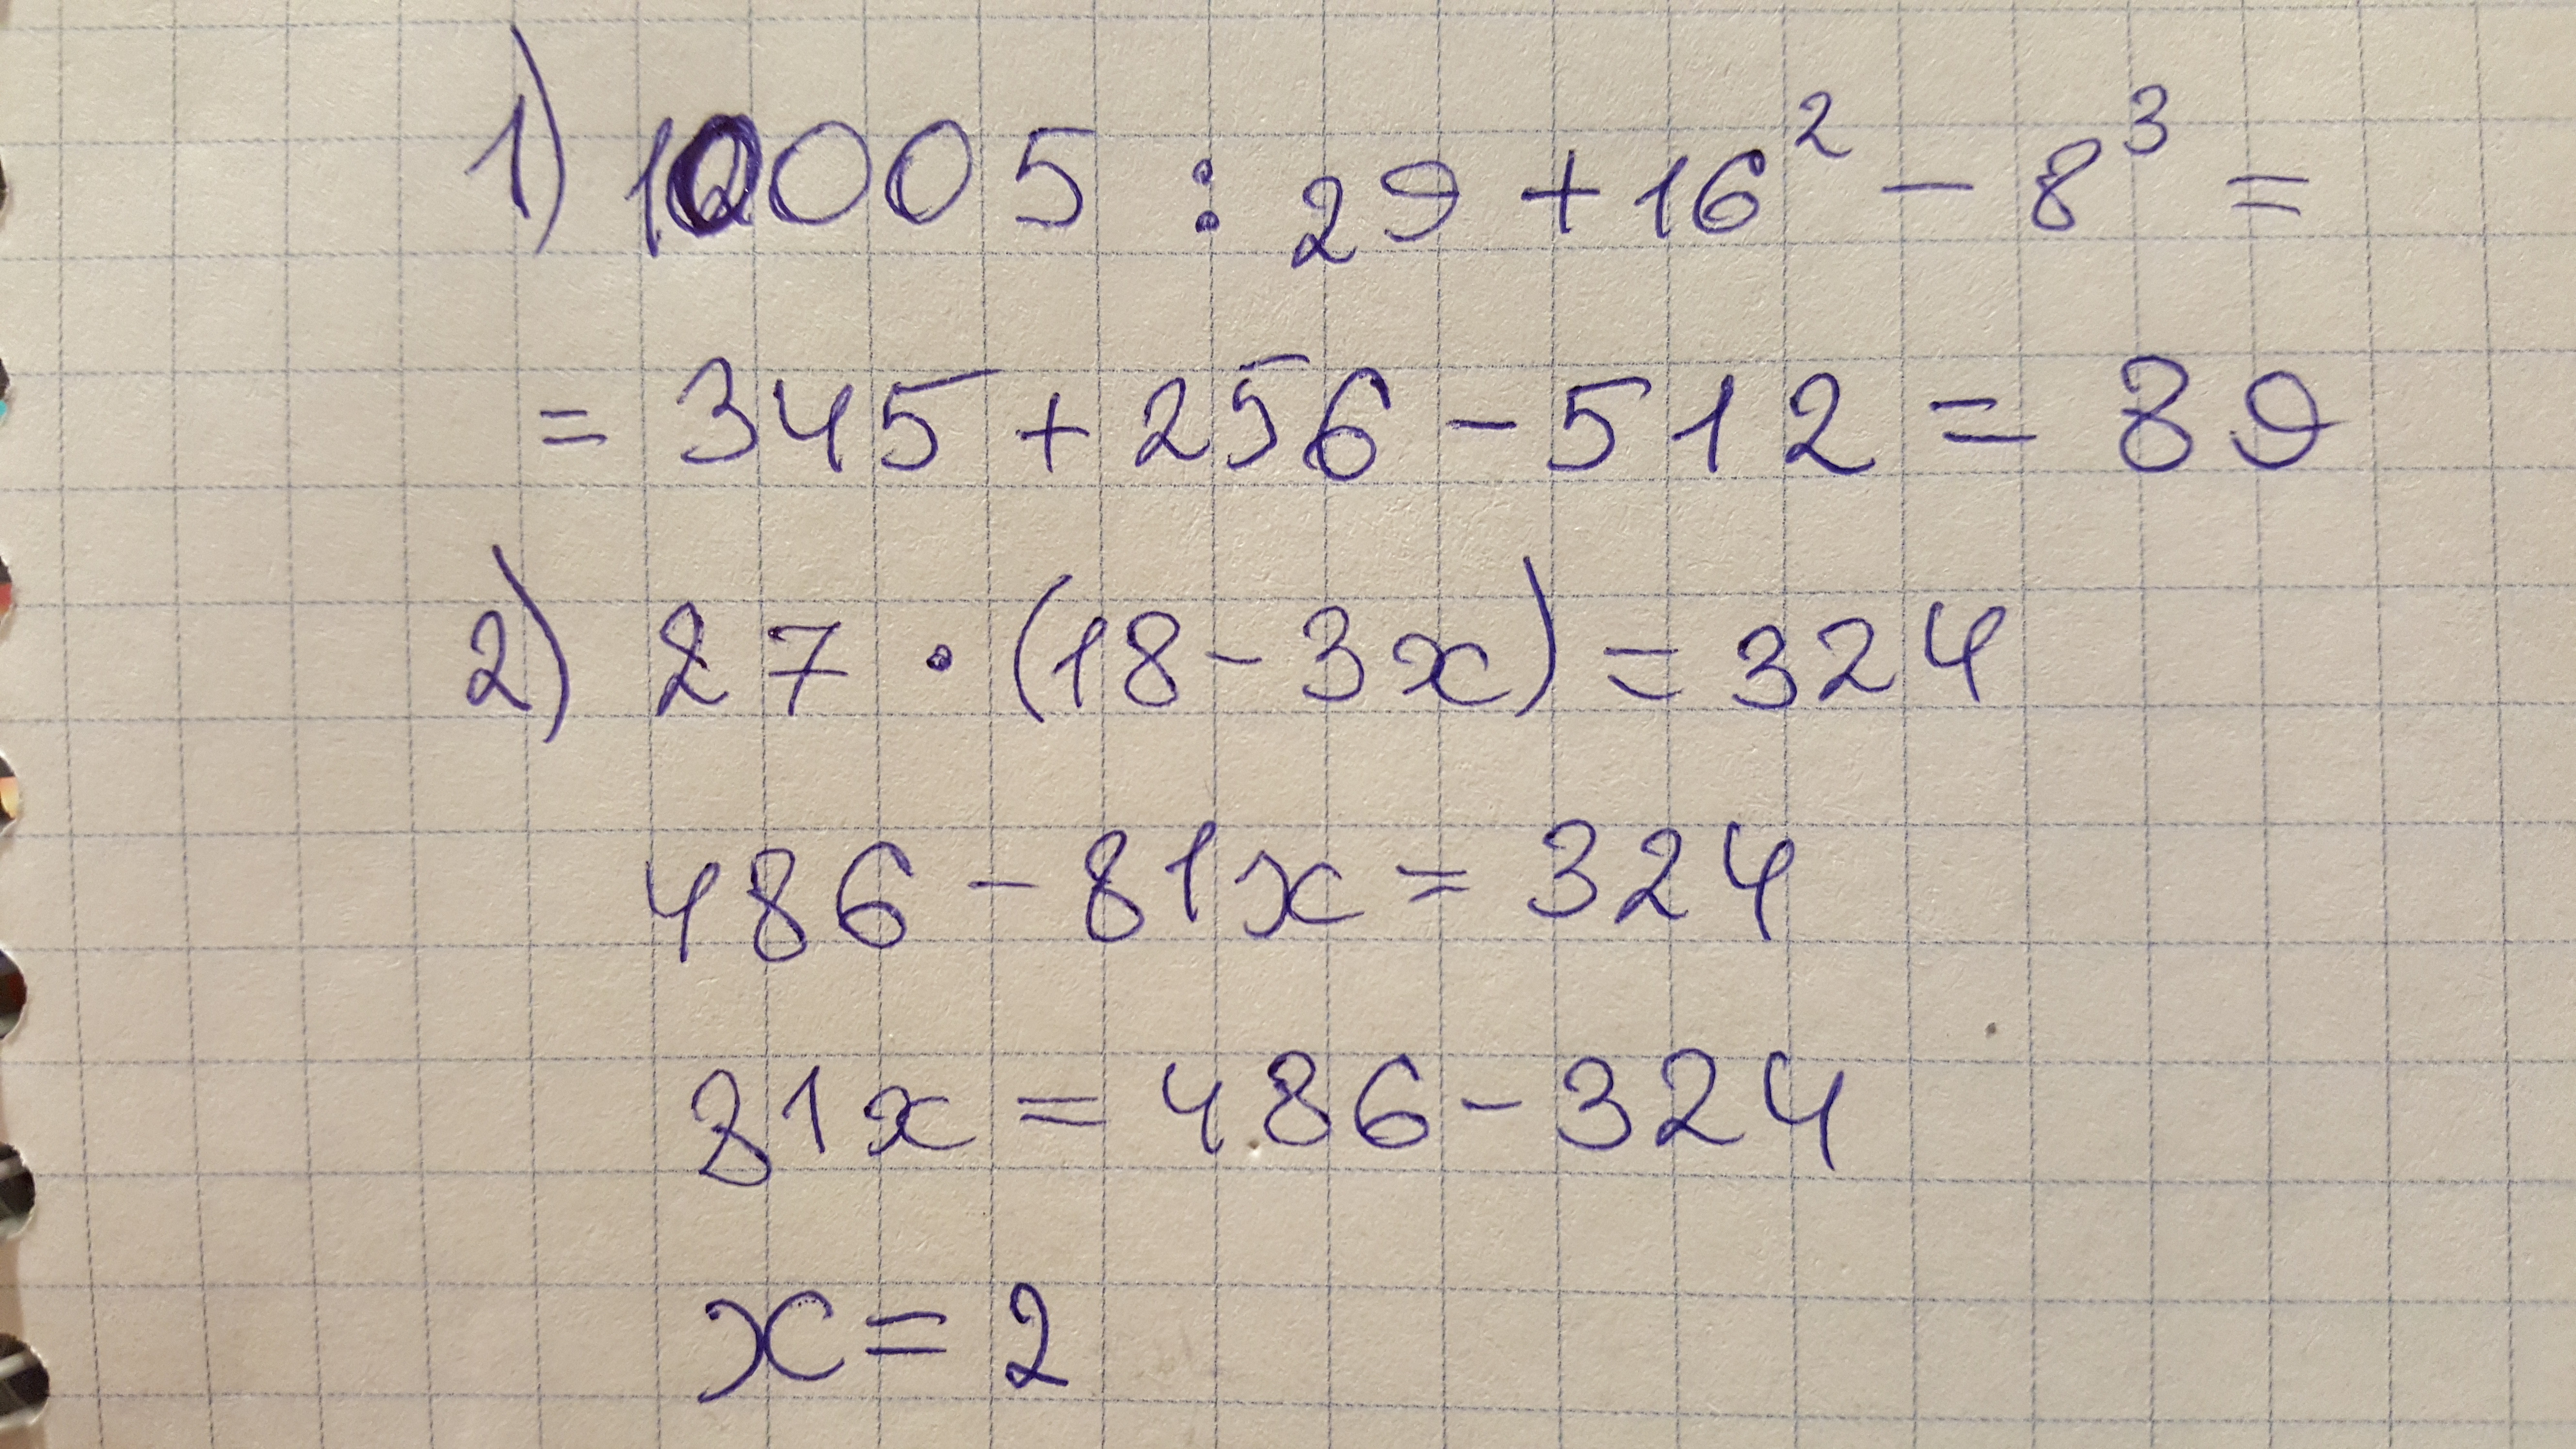 1) 10005 : 29 + 16² - 8³ =
= 345 + 256 - 512 = 89
2) 27 · (18 - 3x) = 324
486 - 81x = 324
81x = 486 - 324
x = 2